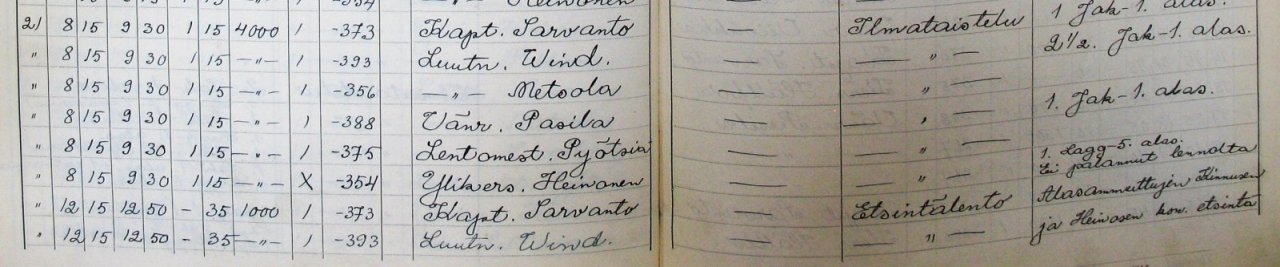 -354 Heinonen
2) 8 15 9 30 1 15 4000 1 -373 Kapt. Sarvanto — Ilmataistelu 1 Jak-1. alas.
" 8 15 9 30 1 15 —"— 1 -393 Luutn. Wind. — — " — 2½. Jak-1. alas.
" 8 15 9 30 1 15 —"— 1 -356 —"— Metsola — — " —
" 8 15 9 30 1 15 —"— 1 -388 Vänr. Pasila — — " — 1. Jak-1. alas.
" 8 15 9 30 1 15 —"— 1 -375 Lentomest. Pyötsiä — — " — 1. Lagg-5. alas.
" 8 15 9 30 1 15 —"— X -354 Ylikers. Heinonen — — " — Ei palannut lennolta
" 12 15 12 50 - 35 1000 1 -373 Kapt. Sarvanto — Etsintälento Alasammuttujen Kinnusen
" 12 15 12 50 - 35 —"— 1 -393 Luutn. Wind. — — " — ja Heinosen kon. etsintä